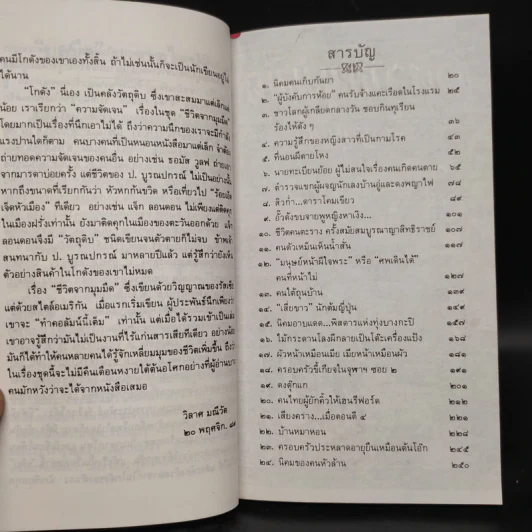 คนมีโกดังของเขาเองทั้งสิ้น ถ้าไม่เช่นนั้นก็จะเป็นนักเขียนอยู่ไม่
ได้นาน
"โกดัง" นี่เอง เป็นคลังวัตถุดิบ ซึ่งเขาสะสมมาแต่เล็กแต่
น้อย เราเรียกว่า "ความจัดเจน" เรื่องในชุด "ชีวิตจากมุมมืด"
โดยมากเป็นเรื่องที่นึกเอาไม่ได้ ถึงว่าความนึกของเราจะมีกำลัง
แรงปานใดก็ตาม คนบางคนที่เป็นหนอนหนังสือมาแต่เล็ก
ถ่ายทอดความจัดเจนของคนอื่น อย่างเช่น ธอมัส วูลฟ
จากมารดาบ่อยครั้ง แต่ชีวิตของ ป. บูรณปกรณ์ ไม่เป็นอย่างนั้น
หากถึงขนาดที่เรียกกันว่า หัวหกก้นขวิด หรือเที่ยวไป
เจ็ดหัวเมือง" ทีเดียว อย่างเช่น แจ็ก ลอนดอน ไม่เพียงแต่ติดคุก
ในเมืองฝรั่งเท่านั้น ยังมาติดคุกในเมืองของตะวันออกด้วย
ลอนดอนจึงมี "วัตถุดิบ" ชนิดเขียนจนตัวตายก็ไม่จบ
สนทนากับ ป. บูรณปกรณ์ มาหลายปีแล้ว แต่รู้สึกว่ายังเห็น
ตัวอย่างสินค้าในโกดังของเขาไม่หมด
เรื่อง "ชีวิตจากมุมมืด" ซึ่งเขียนด้วยวิญญาณของรัสเซีย
แต่ด้วยสไตล์อเมริกัน เมื่อแรกเริ่มเขียน ผู้ประพันธ์นึกเพียงว่า
เขาจะ "ทำคอลัมน์นี้เต็ม" เท่านั้น แต่เมื่อได้รวมเข้าเป็นเล่ม
เขาอาจรู้สึกว่ามันไม่เป็นงานที่ไร้แก่นสารเสียทีเดียว อย่างน้อย
มันก็ได้ทำให้คนหลายคนได้รู้จักเหลี่ยมมุมของชีวิตเพิ่มขึ้น
ในเรื่องชุดนี้จะไม่มีคืนเดือนหงายใต้ต้นอโศกอย่างที่ผู้อ่านบาง
คนมักหวังว่าจะได้จากหนังสือเสมอ
วิลาศ มณีวัต
๒๐ พฤศจิก.
สารบัญ
๑. นิคมคนเก็บกันยา ๒๐
๒. "ผู้บังคับการห้อย" คนรับจ้างแคะเรือดในโรงแรม ๒๘
๓. ชาวโลกผู้เกลียดกลางวัน ชอบกินทุเรียน
ร้องไห้ดัง ๆ ๓๖
๔. ความรู้สึกของหญิงสาวที่เป็นกามโรค ๔๓
๕. ที่นอนผีตายโหง ๕๔
๖. นายทะเบียนย้อย ผู้ไม่สนใจเรื่องคนเกิดคนตาย ๖๕
๗. ตำรวจแขกผู้ผจญนักเลงบ้านอู่และดงพญาไฟ ๗๖
๘. สิวกำ...ดาราโคมเขียว ๘๙
๙. ยั้วดังขบจายพูหญิงหาเงิง... ๑๐๑
๑๐. ชีวิตคนตะราง ครั้งสมัยสมบูรณาญาสิทธิราชย์ ๑๐๗
๑๑. คนตัวเหม็นเห็นน้ำสั่น ๑๑๗
๑๒. "มนุษย์หน้าผีใจพระ" หรือ "ศพเดินได้"
คนที่หน้าไม่ ๑๒๗
๑๓. คนใต้ถุนบ้าน ๑๓๙
๑๔. "เสี่ยขาว" นักต้มญี่ปุ่น ๑๔๗
๑๕. นิคมอาบแดด...พิสดารแห่งทุ่งบางกะปิ ๑๕๗
๑๖. ไม้กระดานโลงผีกลายเป็นโต๊ะเครื่องแป้ง ๑๖๘
๑๗. ผัวหน้าเหมือนเมีย เมียหน้าเหมือนผัว ๑๘๑
๑๘. ครอบครัวขี้เกียจในจุฬาฯ ซอย ๒ ๑๙๑
๑๙. ดงตุ๊กแก ๒๐๑
๒๐. คนไทยผู้ยักคิ้วให้เฮนรีฟอร์ด ๒๑๑
๒๑. เสียงคราง...เมื่อตอนตี ๔ ๒๒๑
๒๒. บ้านหมาหอน ๒๒๘
๒๓. ครอบครัวประหลาดอายุยืนเหมือนต้นโอ๊ก ๒๔๑
๒๔. นิคมของคนหัวล้าน ๒๕๐